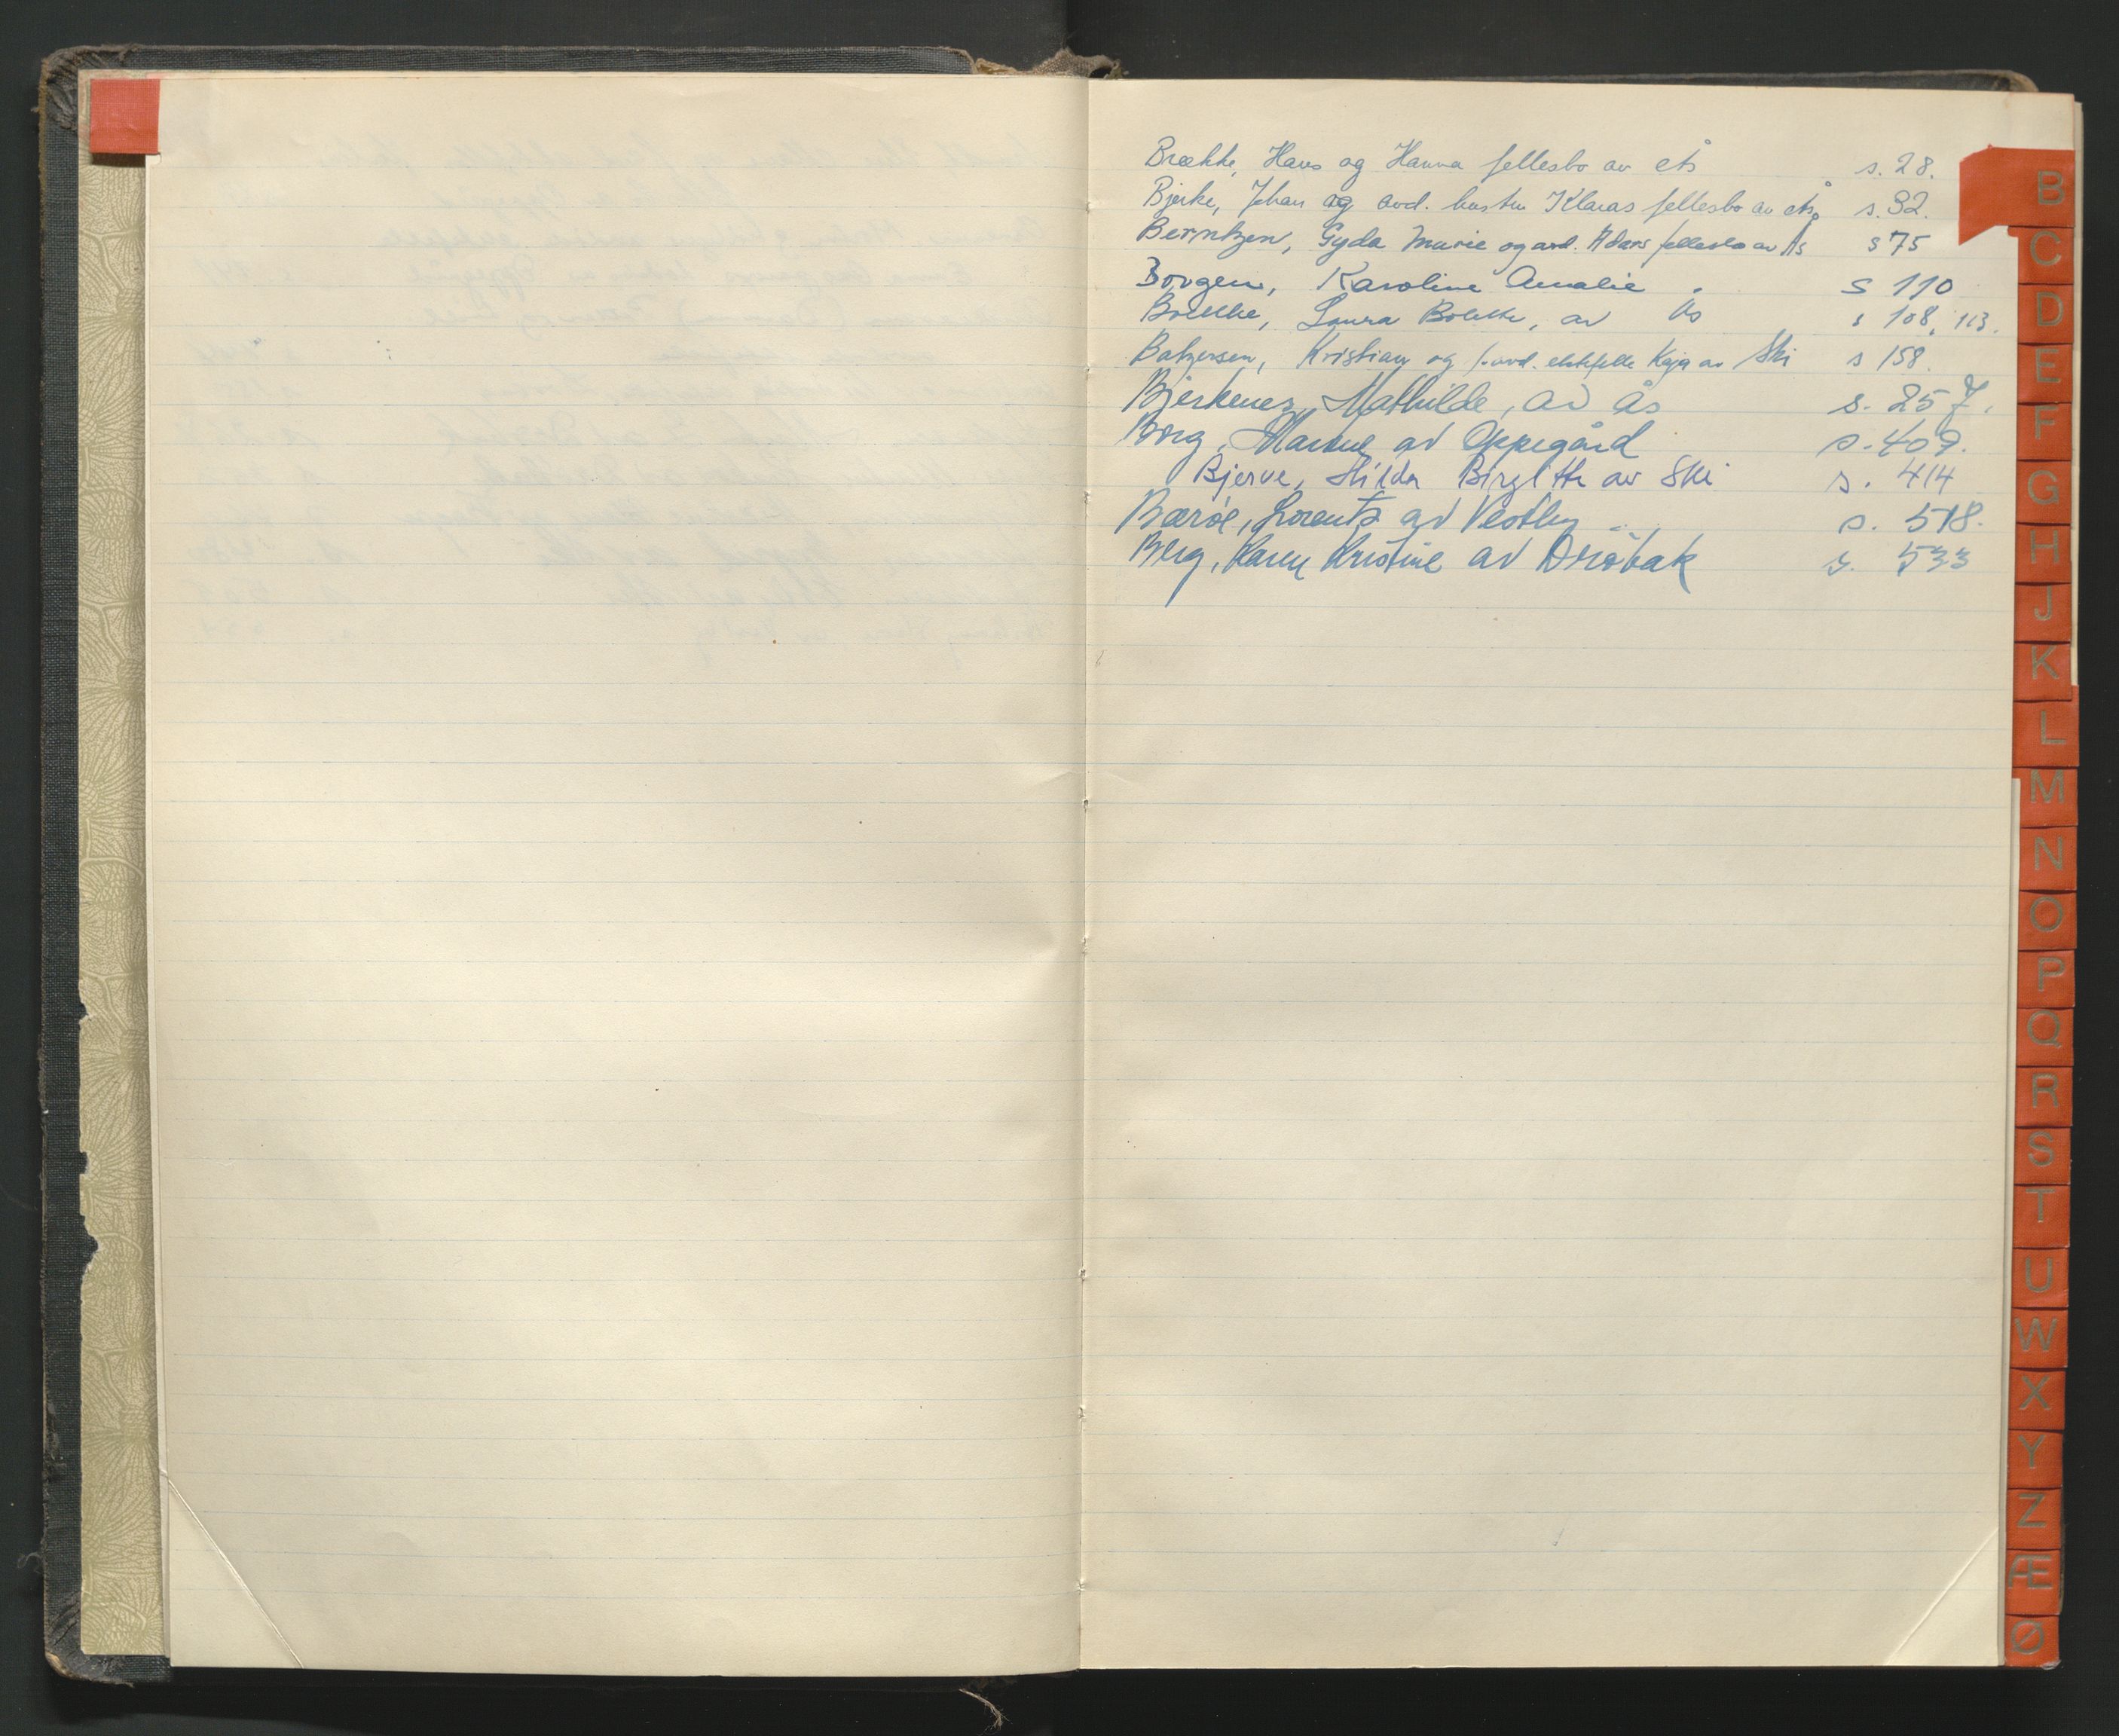 Brække, Hans og Hanna fellesbo av Ås s. 28.
Bjerke, Johan og avd. hustru Klaras fellesbo av Ås. s. 32.
Berntzen, Gyda Marie og avd. Adars fellesbo av Ås s 75
Borgen, Karoline Amalie s 110
Brække, Laura Bolette, av Ås s 108, 113.
Batzersen, Kristian og f.avd. ektefelle Kaja av Ski s 158.
Bjerkenes, Mathilde, av Ås s. 257.
Borg, av Oppegård s. 409.
Bjerve, Hilda Birgitte av Ski s. 414
Bærøe, Lorentz av Vestby s. 518.
Berg, Karen Kristine av Drøbak s. 533
B
C
D
E
F
G
H
J
K
L
M
N
O
P
Q
R
S
T
U
W
X
Y
Z
Æ
Ø